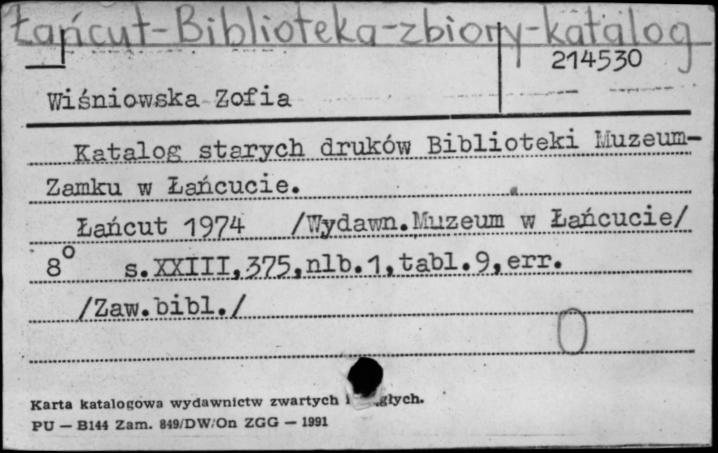 Łańcut-Biblioteka-zbiory-katalog
214530
Wiśniowska Zofia
Katalog starych druków Biblioteki Muzeum-
Zamku w Łańcucie.
Łańcut 1974 /Wydawn.Muzeum w Łańcucie/
8° s.XXIII,375,nlb.1,tabl.9,err.
/Zaw.bibl./
0
Karta katalogowa wydawnictw zwartych
PU — B144 Zam. 849/DW/On ZGG — 1991